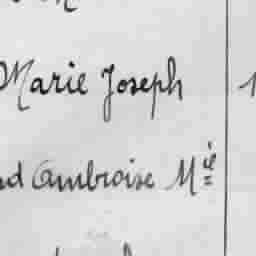 Marie Joseph
nd Ambroise Mie